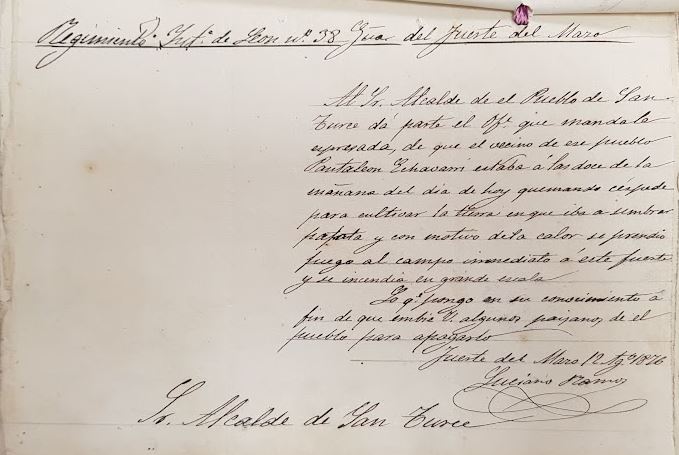 Regimiento Inf.ª de Leon nº 38 Gua del Fuerte del Mazo
Al Sr. Alcalde de el Pueblo de San-
turce dá parte el Ofl. que manda la
espresada, de que el vecino de ese pueblo
Pantaleon Echavarri estaba á las doce de la
mañana del dia de hoy quemando céspede
para cultivar la tierra en que iba a sembrar
papata y con motivo de la calor se prendio
fuego al campo inmediato a este fuerte
y se incendia en grande escala
Lo q.e pongo en su conocimiento á
fin de que embie V. algunos paisanos de el
pueblo para apagarlo
Fuerte del Mazo 12 Ag.to 1876
Luciano Ramos
Sr. Alcalde de San Turce